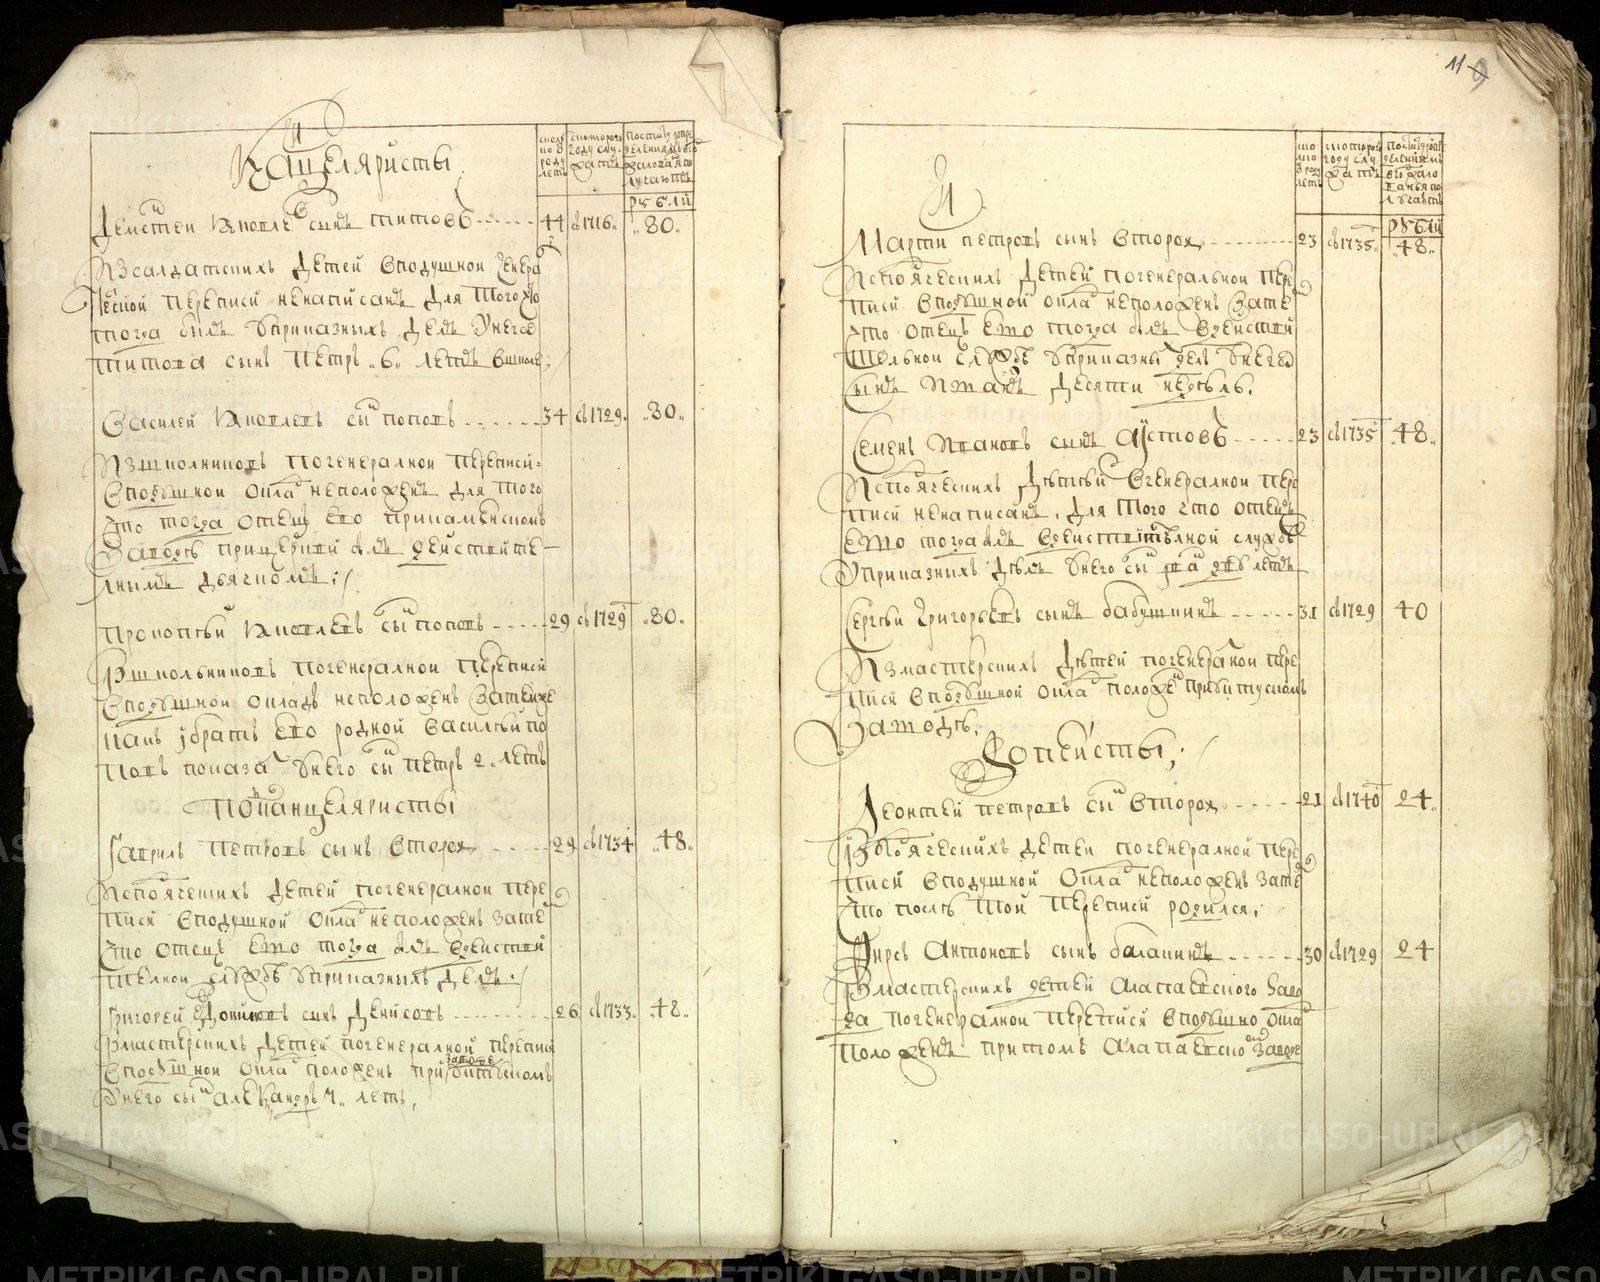 Канцеляристы
сколь
ко о
роду
летъ
с котораго
году слу
жатъ
рубли
Дементей Яковлевъ сынъ Титовъ 44 съ 1716 80
Из салдатскихъ детей в подушной генера
леной переписи ненаписанъ для того что
тогда былъ у приказныхъ делъ у него
Титова сынъ Петръ 6 летъ в школе
Василей Яковлевъ сынъ Поповъ 34 съ 1729 80
Из школниковъ по генералной переписи
в подушной окладъ неположенъ для того
что тогда отецъ ево при Каменскомъ
заводе при церкви былъ действите
лнымъ дьячкомъ
Прокопей Яковлевъ сынъ Поповъ 29 съ 1729 80
Из школьниковъ по генералной переписи
в подушной окладъ неположенъ затемже
какъ и братъ ево родной Василей По
повъ показалъ у него сынъ Петръ 2 летъ
Подканцеляристы
Гаврило Петровъ сынъ Второв 29 съ 1734 48
Ис подьяческихъ детей по генералной пере
писи в подушной окладъ неположенъ затемъ
что отецъ ево тогда былъ в действи
телной службе у приказныхъ делъ
Григорей сынъ Денисовъ 26 съ 1733 48
Из мастерскихъ детей по генералной переписи
в подушной окладъ положенъ при
заводе
у него сынъ Александръ 4 летъ
11 9
рубли
Мартин Петровъ сынъ Второв 23 съ 1735 48
Ис подьяческихъ детей по генеральной пере
писи в подушной окладъ неположенъ затемъ
что отецъ ево тогда былъ в действи
тельной службе у приказныхъ делъ у него
сынъ Иванъ десяти неделъ
Семенъ Ивановъ сынъ 23 съ 1735 48
Ис подьяческихъ детей в генералной пере
писи ненаписанъ для того что отецъ
ево тогда былъ в действителной службе
у приказныхъ делъ у него сынъ летъ
Сергей Григорьевъ сынъ Бабушкинъ 31 съ 1729 40
Из мастерскихъ детей по генералной пере
писи в подушной окладъ положенъ при
заводе
Копеисты
Леонтей Петровъ сынъ Второв 21 съ 1740 24
Ис подьяческихъ детей по генералной пере
писи в подушной окладъ неположенъ затемъ
что после той переписи родился
Фирсъ Антоновъ сынъ Балакинъ 30 съ 1729 24
Из мастерскихъ детей Алапаевского заво
да по генералной переписи в подушной окладъ
положенъ при томъ Алапаевском заводе
METRIKI.GASO-URAL.RU